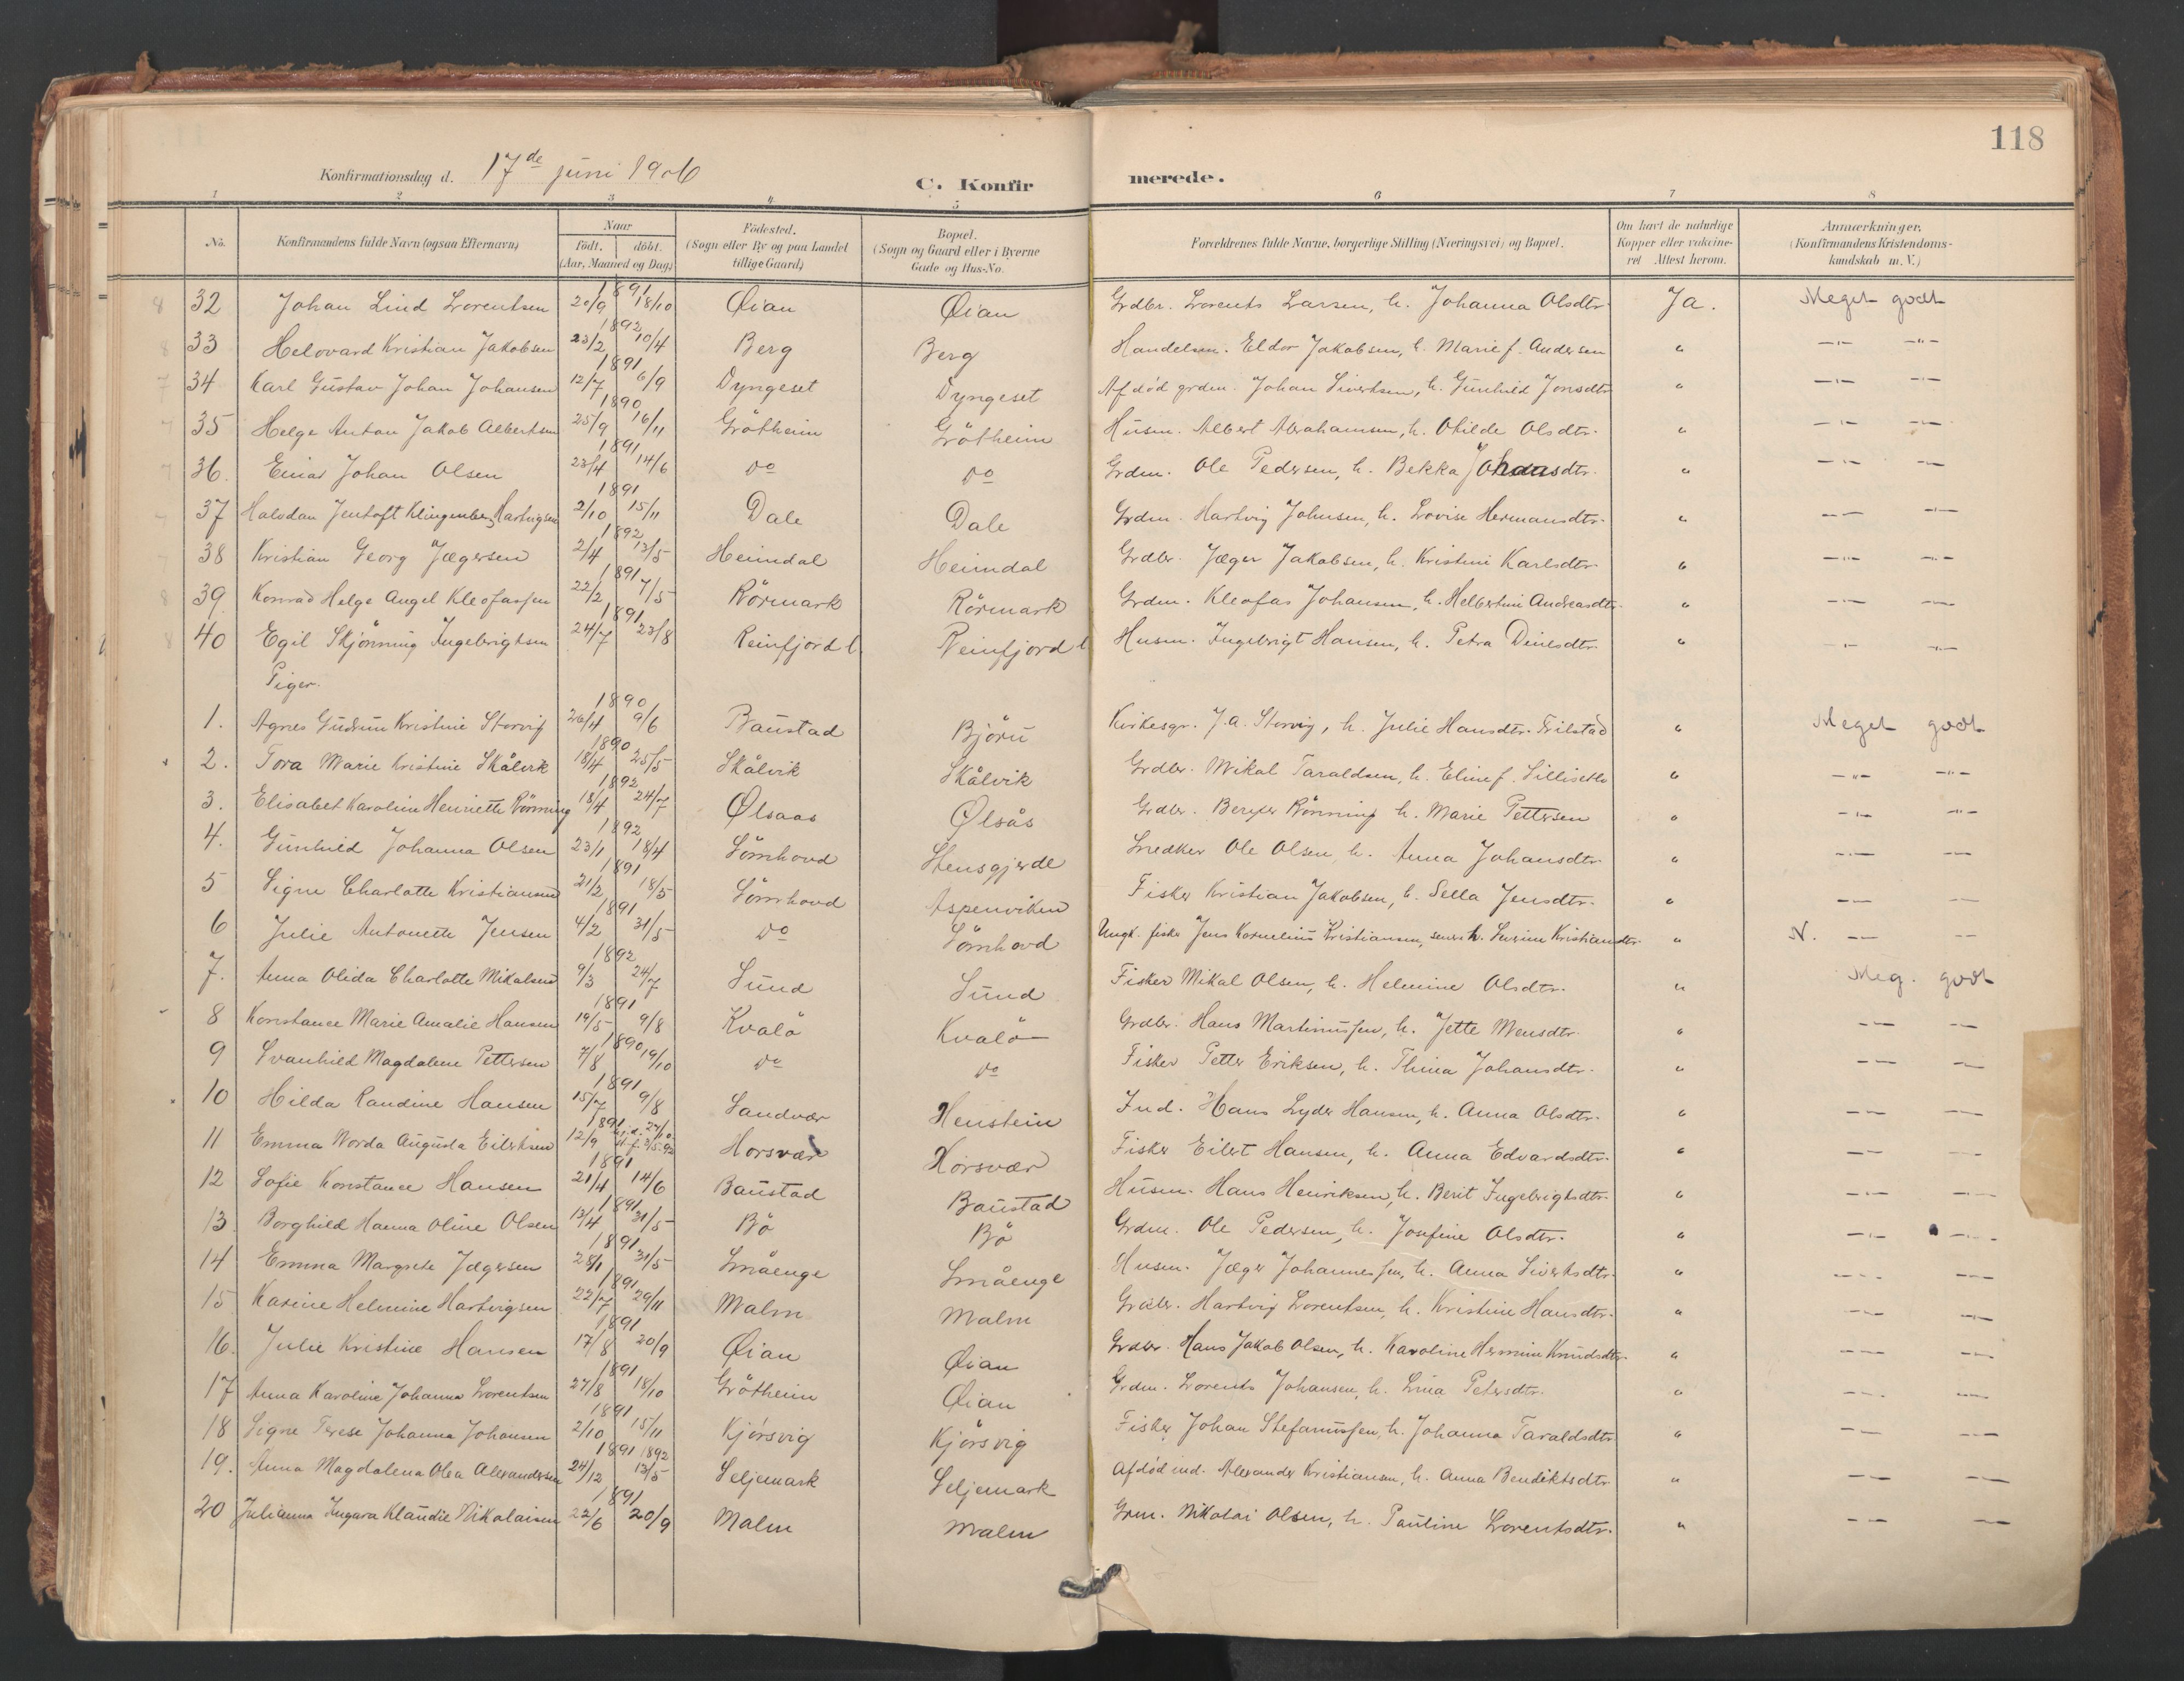 118
Konfirmationsdag d. 17de juni 1906
C. Konfirmerede.
1 2 3 4 5 6 7 8
No. Konfirmandens fulde Navn (ogsaa Efternavn) Naar født. døbt. (Aar, Maaned og Dag) Fødested. (Sogn eller By og paa Landet tillige Gaard) Bopæl. (Sogn og Gaard eller i Byerne Gade og Hus-No. Forældrenes fulde Navne, borgerlige Stilling (Næringsvei) og Bopæl. Om havt de naturlige Kopper eller vaccineret Attest herom. Anmærkninger. (Konfirmandens Kristendomskundskab m. V.)
8 32 Johan Lind Lorentsen 1891 20/9 18/10 Øian Øian Grdbr. Lorents Larsen, h. Johanna Olsdtr. Ja. Meget godt
8 33 Helovard Kristian Jakobsen 1892 23/2 10/4 Berg Berg Handelsm. Eldor Jakobsen, h. Marie f. Andersen " —"— —"—
7 34 Karl Gustav Johan Johansen 1891 12/7 6/9 Dyngeset Dyngeset Afdød grdm. Johan Sivertsen, h. Gunhild Jonsdtr " —"— —"—
7 35 Helge Anton Jakob Albertsen 1890 25/9 16/11 Gråtheim Gråtheim Husm. Albert Abrahamsen, h. Ohilde Olsdtr. " —"— —"—
7 36. Einar Johan Olsen 1891 23/4 14/6 do do Grdm. Ole Pedersen, h. Bekka Johansdtr. " —"— —"—
37 Halvdan Jentoft Klingenberg Hartvigsen 1891 2/10 15/11 Dale Dale Grdm. Hartvig Johnsen, h. Lovise Hermansdtr. " —"— —"—
7 38 Kristian Georg Jægersen 1892 2/4 13/5 Heimdal Heimdal Grdbr. Jæger Jakobsen, h. Kristine Karlsdtr. " —"— —"—
8 39 Konrad Helge Angel Kleofassen 1891 22/2 7/5 Rörmark Rörmark Grdm. Kleofas Johansen, h. Helbertine Andreasdtr. " —"— —"—
8 40 Egil Skjönning Ingebrigtsen 1891 24/7 23/8 Reinfjord l. Reinfjord l Husm. Ingebrigt Hansen, h. Petra Dinesdtr. " —"— —"—
Piger.
1. Agnes Gudrun Kristine Storvig 1890 26/4 9/6 Baustad Björu Kirkesgr. J. A. Storvig, h. Julie Hansdtr. Trilstad " Meget godt
2. Tora Marie Kristine Skålvik 1890 18/4 25/5 Skålvik Skålvik Grdbr. Mikal Taraldsen, h. Eline f. " —"— —"—
3. Elisabet Karoline Henriette Rönning 1892 18/4 24/7 Ølsaas Ølsås Grdbr. Rönning h. Marie Pettersen " —"— —"—
4. Gunhild Johanna Olsen 1892 23/1 18/4 Sömhovd Stensgjerde Snedker Ole Olsen, h. Anna Johansdtr. " —"— —"—
5 Signe Charlotte Kristiansen 1891 21/2 18/5 Sömhovd Aspenviken Fisker Kristian Jakobsen, h. Sella Jensdtr. " —"— —"—
6 Julie Antonette Jensen 1891 4/2 31/5 do Sömhovd Ungk. fisker Jens Kornelius Kristiansen, senere h. Severine Kristiansdtr. " N. —"— —"—
7. Anna Olida Charlotte Mikalsen 1892 9/3 24/7 Sund Sund Fisker Mikal Olsen, h. Helmine Olsdtr. " Meg. godt
8 Konstance Marie Amalie Hansen 1891 19/5 9/8 Kvalö Kvalö Grdbr. Hans Martinussen, h. Jette Monsdtr. " —"— —"—
9 Svanhild Magdalene Pettersen 1890 7/8 19/10 do do Fisker Petter Eriksen, h. Thina Johansdtr. " —"— —"—
10 Hilda Randine Hansen 1891 15/7 9/8 Sandvær Henstein Ind. Hans Lyder Hansen, h. Anna Olsdtr. " —"— —"—
11 Emma Norda Augusta Eilertsen 1891 12/9 Horsvær Horsvær Fisker Eilert Hansen, h. Anna Edvardsdtr. " —"— —"—
12 Sofie Konstance Hansen 1891 21/4 14/6 Baustad Baustad Husm. Hans Henriksen, h. Berit Ingebrigtsdtr. " —"— —"—
13. Borghild Hanna Oline Olsen 1891 13/4 31/5 Bö Bö Grdm. Ole Pedersen, h. Josefine Olsdtr. " —"— —"—
14 Emma Margrete Jægersen 1891 28/1 31/5 Småenge Småenge Husm. Jæger Johannessen, h. Anna Sivertsdtr. " —"— —"—
15 Karine Helmine Hartvigsen 1891 22/7 29/11 Malm Malm Grdbr. Hartvig Lorentsen, h. Kristine Hansdtr. " —"— —"—
16. Julie Kristine Hansen 1891 17/8 20/9 Øian Øian Grdbr. Hans Jakob Olsen, h. Karoline Hermine Knudsdtr. " —"— —"—
17 Anna Karoline Johanna Lorentsen 1891 27/8 18/10 Gråtheim Øian Grdm. Lorents Johansen, h. Lina Petersdtr. " —"— —"—
18 Signe Terese Johanna Johansen 1891 2/10 15/11 Kjörsvig Kjörsvig Fisker Johan Stefanussen, h. Johanna Taraldsdtr. " —"— —"—
19. Anna Magdalena Olea Alexandersen 1891 1892 24/12 13/5 Seljemark Seljemark Afdød ind. Alexander Kristiansen, h. Anna Bendiktsdtr. " —"— —"—
20 Julianna Ingara Klaudie Nikolaisen 1891 22/6 20/9 Malm Malm Grm. Nikolai Olsen, h. Pauline Lorentsdtr. " —"— —"—